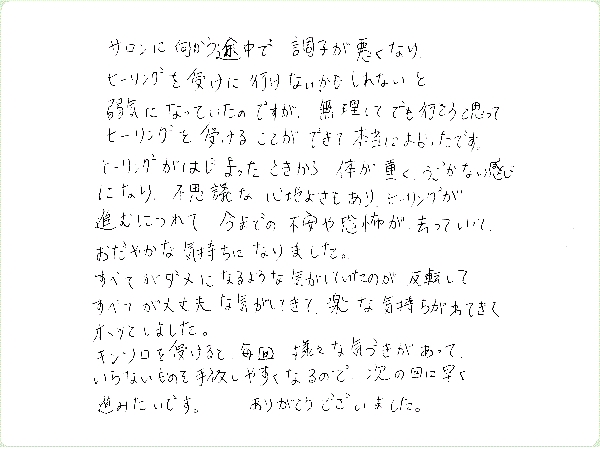 サロンに向かう途中で 調子が悪くなり、
ヒーリングを受けに行けないかもしれないと
弱気になっていたのですが、無理してでも行こうと思って
ヒーリングを受けることができて本当によかったです。
ヒーリングがはじまったときから 体が重く、うごかない感じ
になり、不思議な心地よさもあり、ヒーリングが
進むにつれて 今までの不安や恐怖が去っていって、
おだやかな気持ちになりました。
すべてがダメになるような気がしていたのが 反転して
すべてが大丈夫な気がしてきて、楽な気持ちがわいてきて
ホッとしました。
キンソロを受けると、毎回 様々な気づきがあって、
いらないものを手放しやすくなるので、次の回に早く
進みたいです。 ありがとうございました。